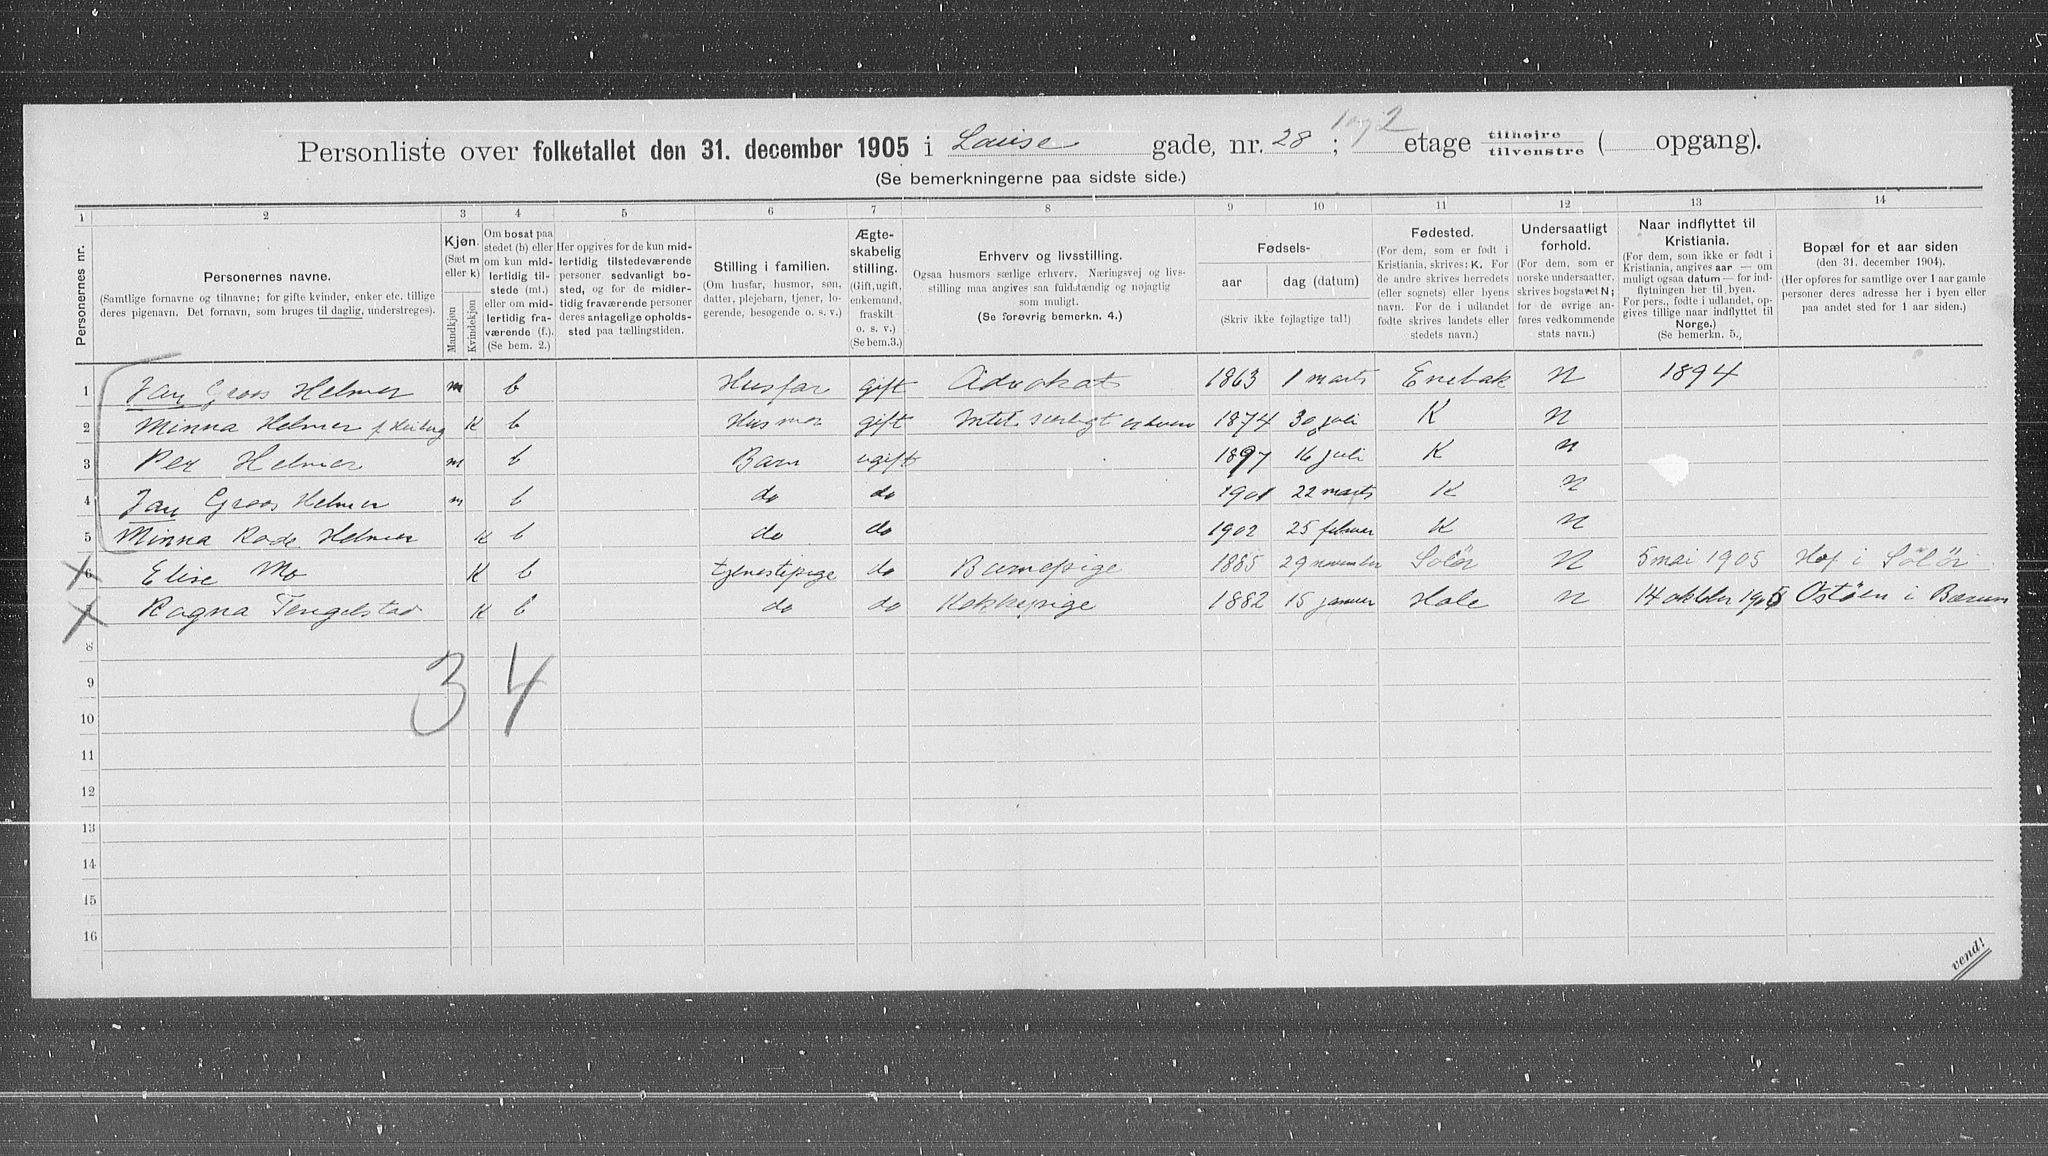 Personliste over folketallet den 31. december 1905 i Louise gade, nr. 28 ; 1 og 2 etage tilhøjre tilvenstre ( opgang).
(Se bemerkningerne paa sidste side.)
1 2 3 4 5 6 7 8 9 10 11 12 13 14
Personernes nr.
Personernes navne.
(Samtlige fornavne og tilnavne; for gifte kvinder, enker etc. tillige deres pigenavn. Det fornavn, som bruges til daglig, understreges).
Kjøn. (Sæt m eller k)
Mandkjøn Kvindekjøn
Om bosat paa stedet (b) eller om kun midlertidig tilstede (mt.) eller om midlertidig fraværende (f.). (Se bem. 2.)
Her opgives for de kun midlertidig tilstedeværende personer sedvanligt bosted, og for de midlertidig fraværende personer deres antagelige opholdssted paa tællingstiden.
Stilling i familien.
(Om husfar, husmor, søn, datter, plejebarn, tjener, logerende, besøgende o. s. v.)
Ægteskabelig stilling.
(Gift, ugift, enkemand, fraskilt o. s. v.) (Se bem.3.)
Erhverv og livsstilling.
Ogsaa husmors særlige erhverv. Næringsvej og livsstilling maa angives saa fuldstændig og nøjagtig som muligt.
(Se forøvrig bemerkn. 4.)
Fødsels-
aar dag (datum)
(Skriv ikke fejlagtige tal!)
Fødested.
(For dem, som er født i Kristiania, skrives: K. For de andre skrives herredets (eller sognets) eller byens navn. For de i udlandet fødte skrives landets eller stedets navn.)
Undersaatligt forhold.
(For dem, som er norske undersaatter, skrives bogstavet N; for de øvrige anføres vedkommende stats navn.)
Naar indflyttet til Kristiania.
(For dem, som ikke er født i Kristiania, angives aar — om muligt ogsaa datum — for indflytningen her til byen. For pers., fødte i udlandet, opgives tillige naar indflyttet til Norge.)
(Se bemerkn. 5.,
Bopæl for et aar siden
(den 31. december 1904).
(Her opføres for samtlige over 1 aar gamle personer deres adresse her i byen eller paa andet sted for 1 aar siden.)
1 Jan Groos Helmer m b Husfar gift Advokat 1863 1 marts Enebak N 1894
2 Minna Helmer f. K b Husmor gift Intet særligt erhverv 1874 30 juli K N
3 Per Helmer m b Barn ugift 1897 16 juli K N
4 Jan Groos Helmer m b do do 1901 22 marts K N
5 Minna Rode Helmer K b do do 1902 25 februar K N
6 Elise Mo K b tjenestepige do Barnepige 1885 29 november Solør N 5 mai 1905 Hof i Solör
7 Ragna Tengelstad K b do do Kokkepige 1882 15 januar Hole N 14 oktober 1905 Ostøen i Bærum
8
3 4
9
10
11
12
13
14
15
16
vend!